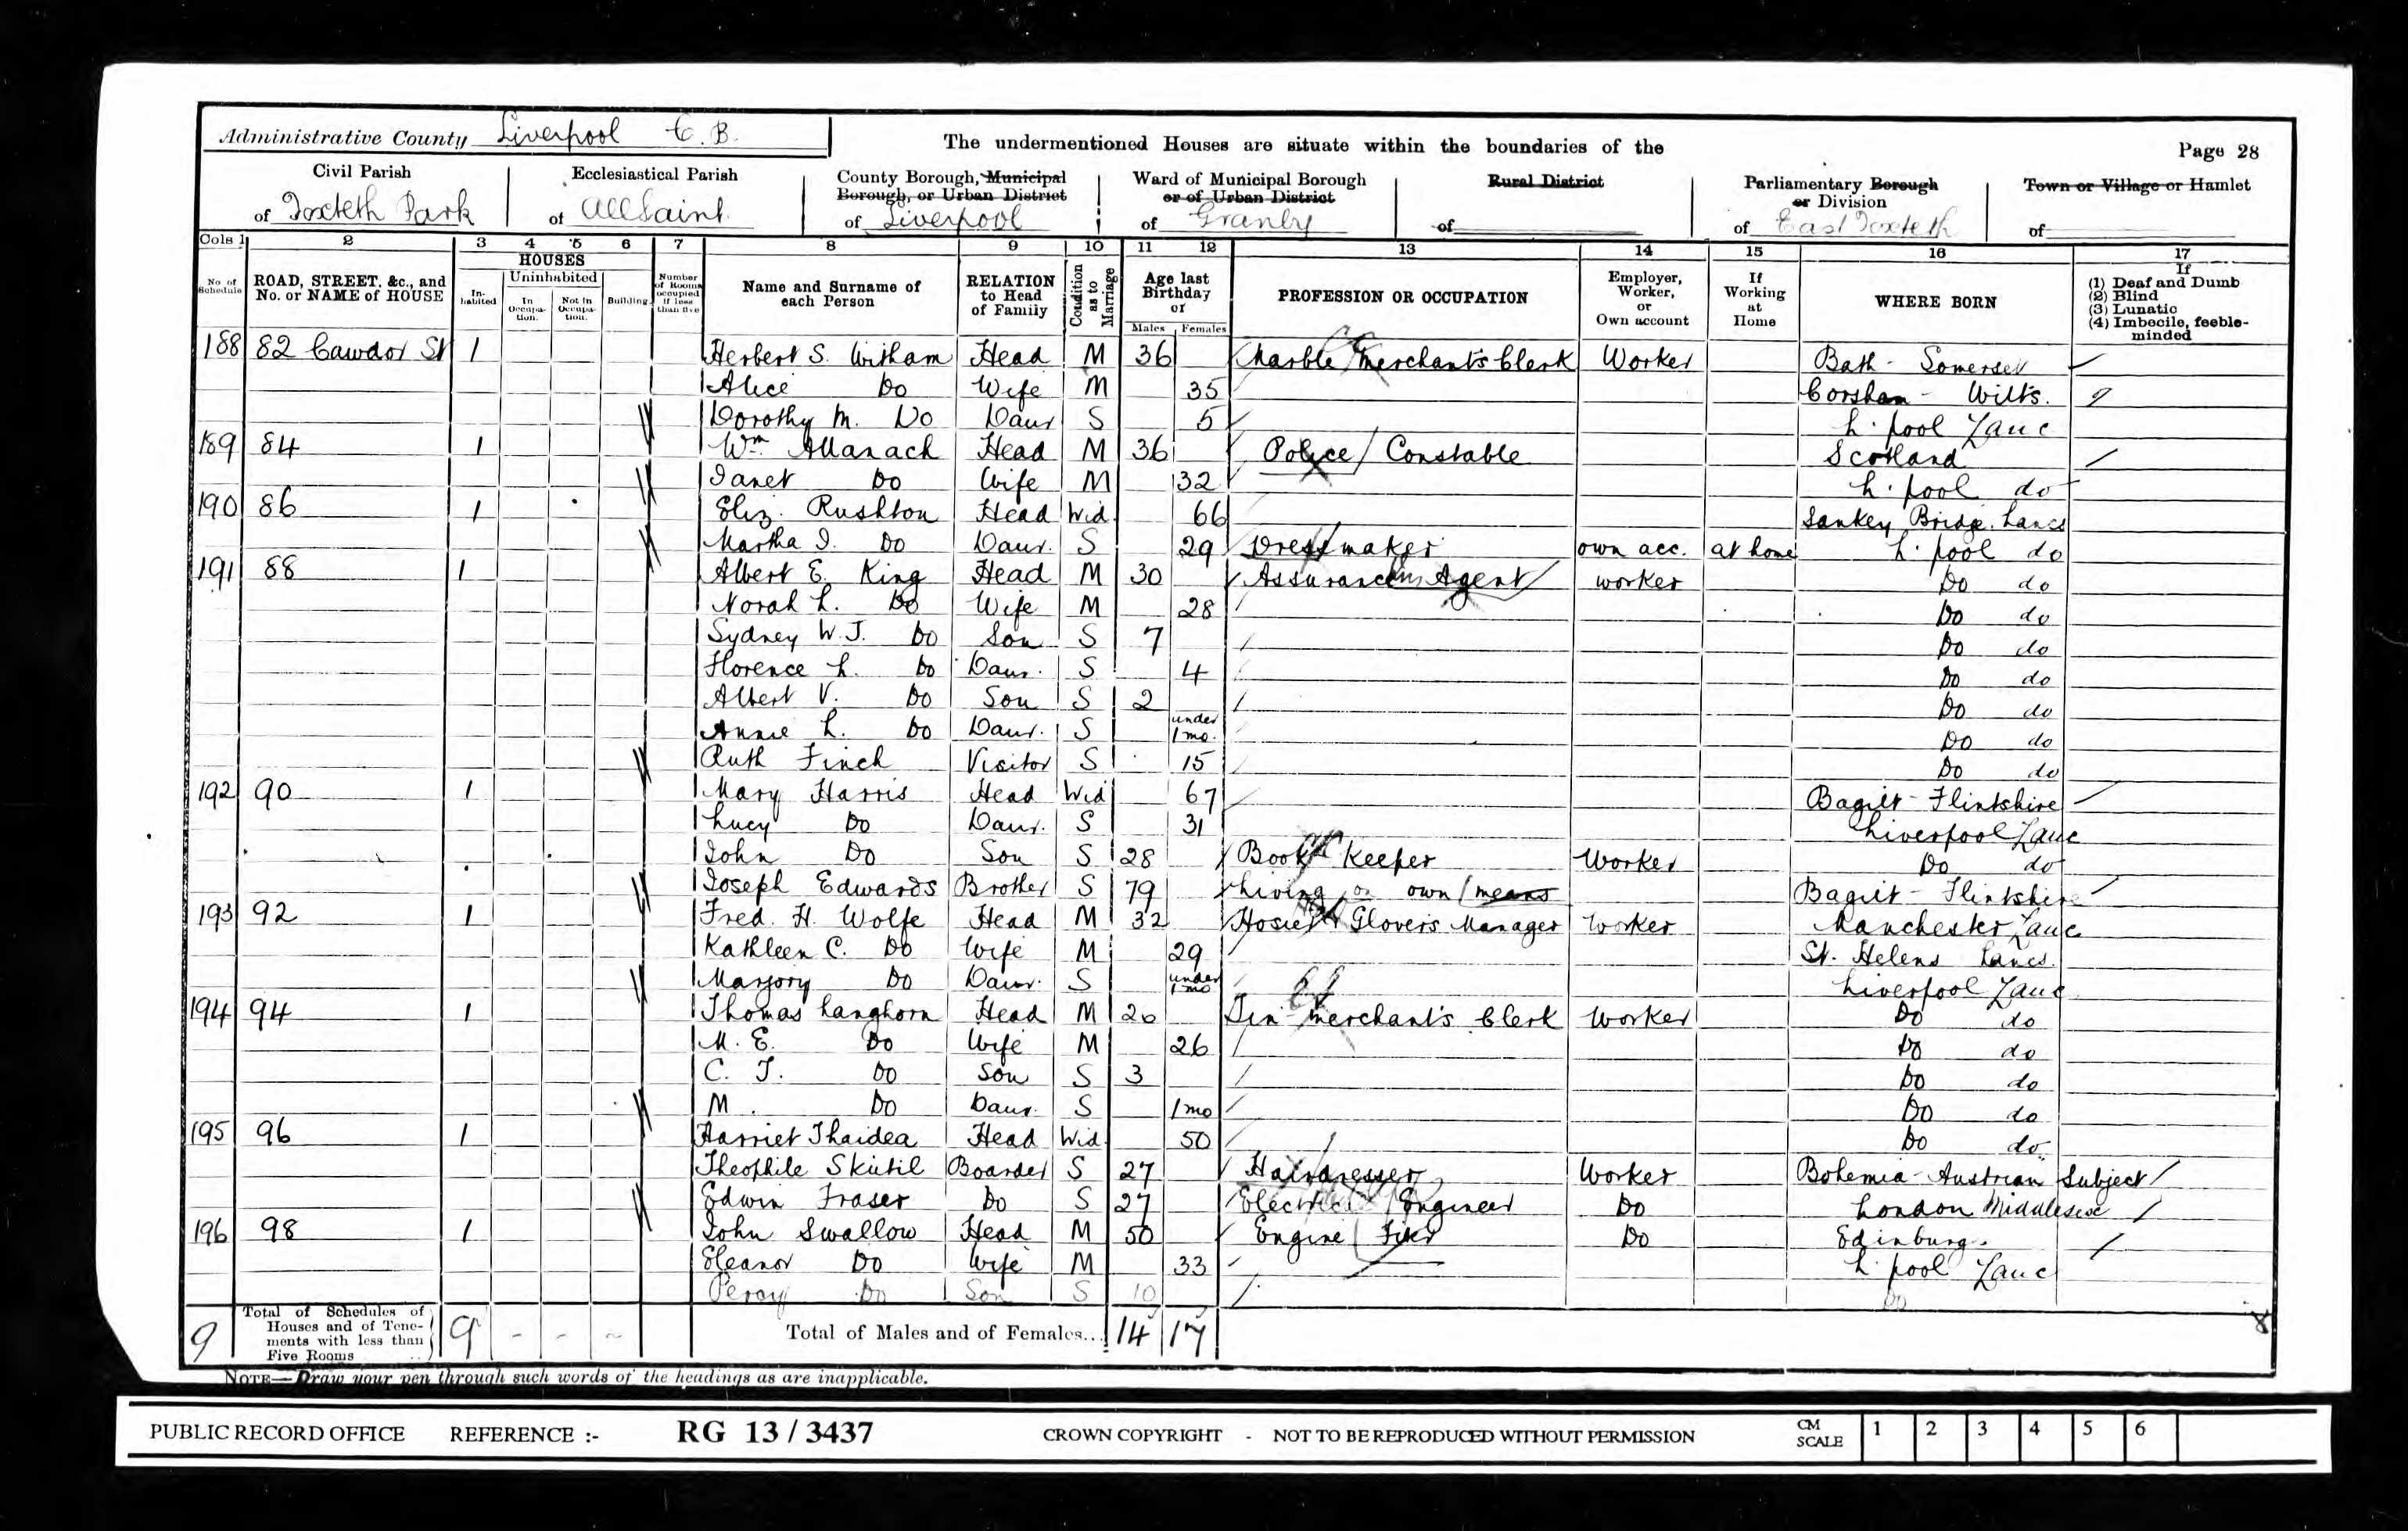 Administrative County Liverpool C.B.
The undermentioned Houses are situate within the boundaries of the
Page 28
Civil Parish of Toxteth Park
Ecclesiastical Parish of All Saint.
County Borough, Municipal Borough, or Urban District of Liverpool
Ward of Municipal Borough or of Urban District of Granby
Rural District of
Parliamentary Borough or Division of East Toxteth
Town or Village or Hamlet of
Cols 1 2 3 4 5 6 7 8 9 10 11 12 13 14 15 16 17
No. of Schedule
ROAD, STREET, &c., and No. or NAME of HOUSE
HOUSES
Inhabited
Uninhabited
In Occupation.
Not in Occupation.
Building
Number of Rooms occupied if less than five
Name and Surname of each Person
RELATION to Head of Family
Condition as to Marriage
Age last Birthday of
Males Females
PROFESSION OR OCCUPATION
Employer, Worker, or Own account
If Working at Home
WHERE BORN
If
(1) Deaf and Dumb
(2) Blind
(3) Lunatic
(4) Imbecile, feeble-minded
188 82 Cawdor St 1 Herbert S. Witham Head M 36 Marble Merchant's Clerk Worker Bath - Somerset
Alice Do Wife M 35 Corsham - Wilts.
Dorothy M. Do Daur S 5 L.pool Lanc
189 84 1 Wm. Allanach Head M 36 Police Constable Scotland
Janet Do Wife M 32 L.pool do
190 86 1 Eliz. Rushton Head Wid 66 Sankey Bridge. Lancs
Martha J. Do Daur. S 29 Dressmaker own acc. at home L.pool do
191 88 1 Albert E. King Head M 30 Assurance Agent worker Do do
Norah L. Do Wife M 28 Do do
Sydney W. J. Do Son S 7 Do do
Florence L. Do Daur. S 4 Do do
Albert V. Do Son S 2 Do do
Annie L. Do Daur. S under 1 mo. Do do
Ruth Finch Visitor S 15 Do do
192 90 1 Mary Harris Head Wid 67 Bagilt - Flintshire
Lucy Do Daur. S 31 Liverpool Lanc
John Do Son S 28 Book Keeper Worker Do do
Joseph Edwards Brother S 79 Living on own means Bagilt - Flintshire
193 92 1 Fred. H. Wolfe Head M 32 Hosier & Glovers Manager Worker Manchester Lanc
Kathleen C. Do Wife M 29 St. Helens Lancs.
Marjory Do Daur. S under 1 mo Liverpool Lanc
194 94 1 Thomas Langhorn Head M 26 Tin Merchant's Clerk Worker Do do
M. E. Do Wife M 26 Do do
C. J. Do Son S 3 Do do
M. Do Daur. S 1 mo Do do
195 96 1 Harriet Thaidea Head Wid. 50 Do do.
Theophile Skutil Boarder S 27 Hairdresser Worker Bohemia - Austrian Subject
Edwin Fraser Do S 27 Electrical Engineer Do London Middlesex
196 98 1 John Swallow Head M 50 Engine Do Edinburg.
Eleanor Do Wife M 33 L.pool Lanc
Percy Do Son S 10 Do
9 Total of Schedules of Houses and of Tenements with less than Five Rooms 9 - - ~ Total of Males and of Females... 14 17
NOTE—Draw your pen through such words of the headings as are inapplicable.
PUBLIC RECORD OFFICE REFERENCE :- RG 13 / 3437 CROWN COPYRIGHT - NOT TO BE REPRODUCED WITHOUT PERMISSION CM SCALE 1 2 3 4 5 6